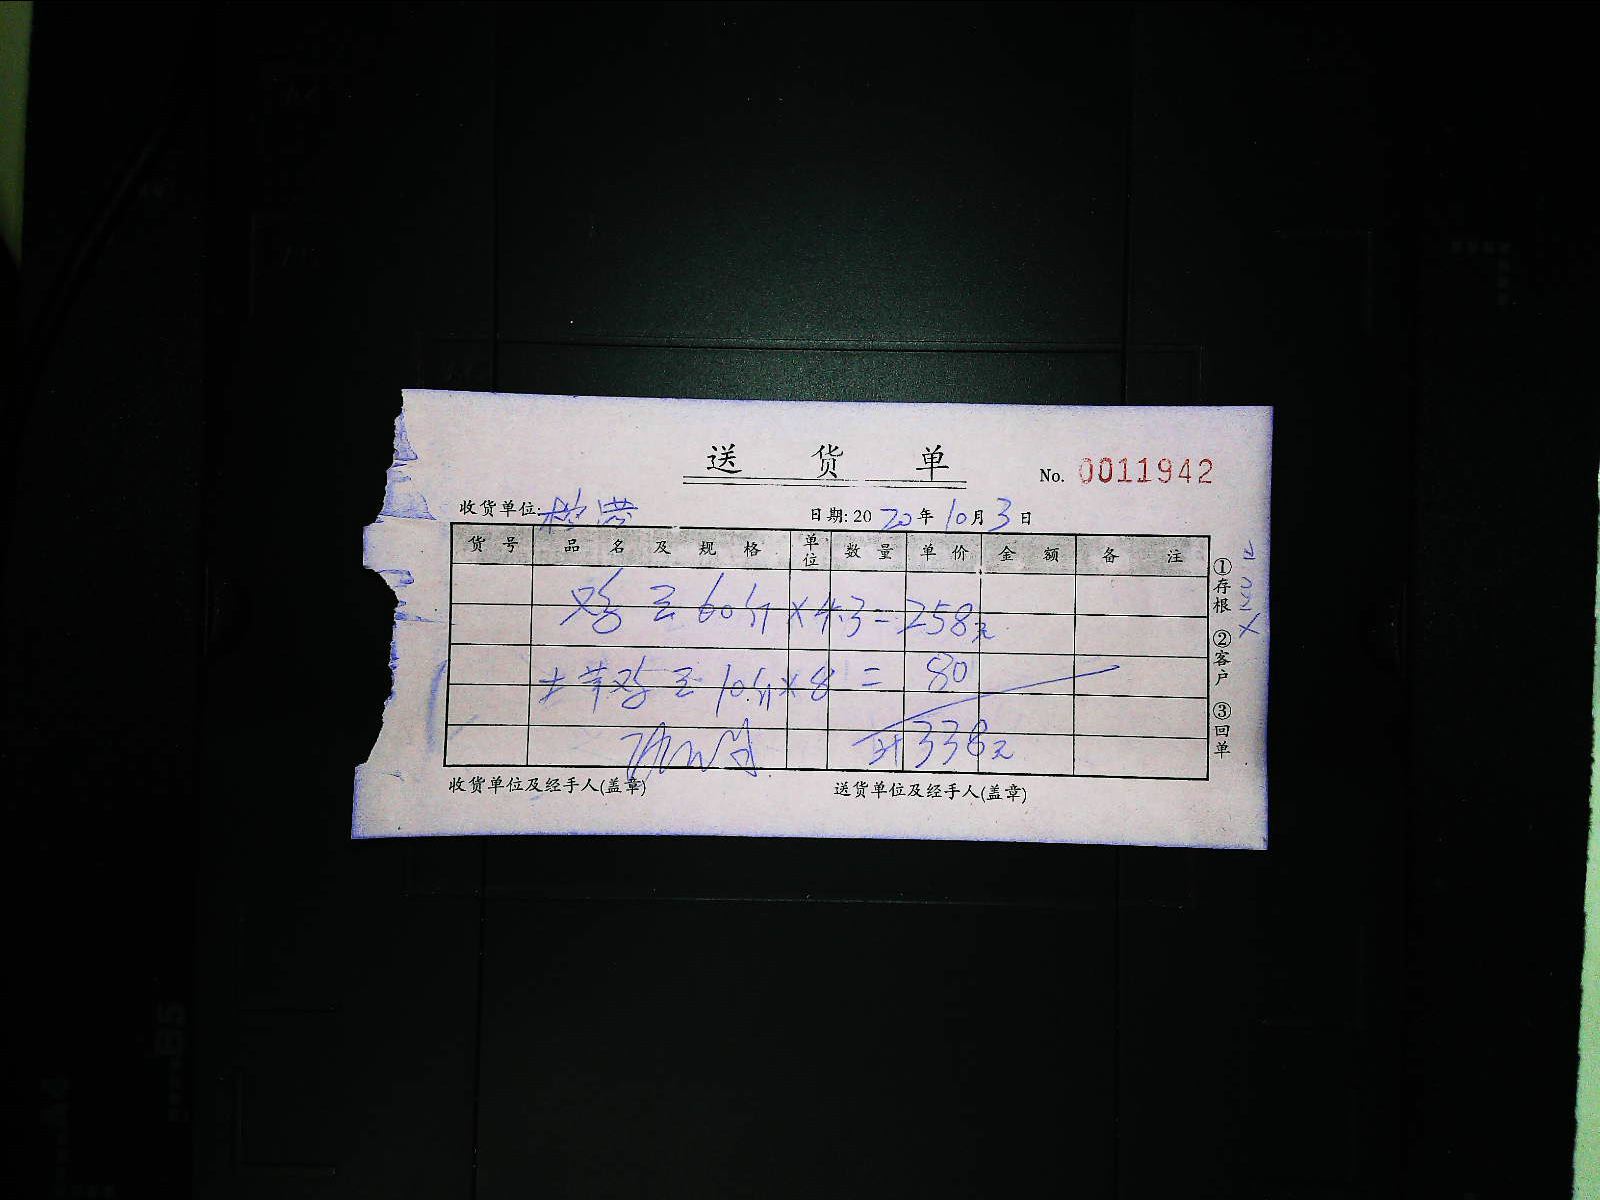 送 货 单
No. 0011942
收货单位:
日期: 20 20 年 10 月 3 日
货 号 品 名 及 规 格 单位 数 量 单 价 金 额 备 注
鸡 60斤 × 4.3 = 258元
土 鸡 10斤 × 8 = 80
计 338元
收货单位及经手人(盖章) 送货单位及经手人(盖章)
①存根 ②客户 ③回单